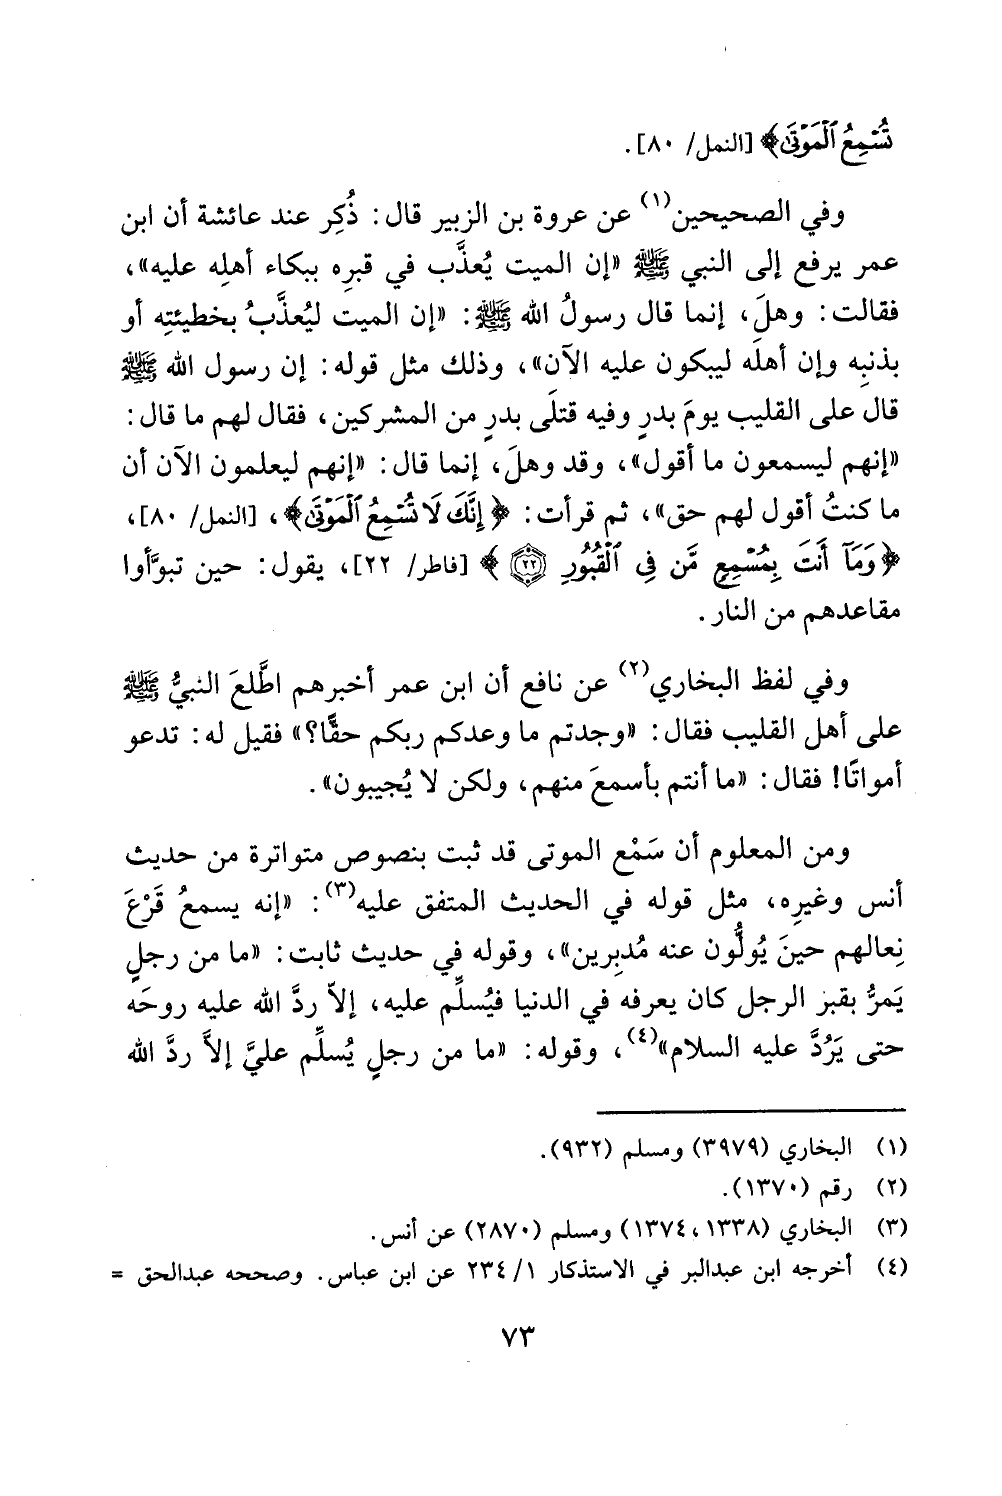 تُسْمِعُ الْمَوْتَى﴾ [النمل/ ٨٠].
وفي الصحيحين(١) عن عروة بن الزبير قال: ذُكِر عند عائشة أن ابن
عمر يرفع إلى النبي ﷺ «إن الميت يُعذَّب في قبرِه ببكاء أهلِه عليه»،
فقالت: وهلَ، إنما قال رسولُ الله ﷺ: «إن الميت ليُعذَّبُ بخطيئتِه أو
بذنبِه وإن أهلَه ليبكون عليه الآن»، وذلك مثل قوله: إن رسول الله ﷺ
قال على القليب يومَ بدرٍ وفيه قتلَى بدرٍ من المشركين، فقال لهم ما قال:
«إنهم ليسمعون ما أقول»، وقد وهلَ، إنما قال: «إنهم ليعلمون الآن أن
ما كنتُ أقول لهم حق»، ثم قرأت: ﴿إِنَّكَ لَا تُسْمِعُ الْمَوْتَى﴾، [النمل/ ٨٠]،
﴿وَمَآ أَنتَ بِمُسْمِعٍ مَّن فِي الْقُبُورِ ٢٢﴾ [فاطر/ ٢٢]، يقول: حين تبوَّأوا
مقاعدهم من النار.
وفي لفظ البخاري(٢) عن نافع أن ابن عمر أخبرهم اطَّلعَ النبيُّ ﷺ
على أهل القليب فقال: «وجدتم ما وعدكم ربكم حقًّا؟» فقيل له: تدعو
أمواتًا! فقال: «ما أنتم بأسمعَ منهم، ولكن لا يُجيبون».
ومن المعلوم أن سَمْع الموتى قد ثبت بنصوص متواترة من حديث
أنس وغيرِه، مثل قوله في الحديث المتفق عليه(٣): «إنه يسمعُ قَرْعَ
نِعالهم حينَ يُولُّون عنه مُدبِرين»، وقوله في حديث ثابت: «ما من رجلٍ
يَمرُّ بقبرِ الرجل كان يعرفه في الدنيا فيُسلِّم عليه، إلاّ ردَّ الله عليه روحَه
حتى يَرُدَّ عليه السلام»(٤)، وقوله: «ما من رجلٍ يُسلِّم عليَّ إلاَّ ردَّ الله
(١) البخاري (٣٩٧٩) ومسلم (٩٣٢).
(٢) رقم (١٣٧٠).
(٣) البخاري (١٣٣٨، ١٣٧٤) ومسلم (٢٨٧٠) عن أنس.
(٤) أخرجه ابن عبدالبر في الاستذكار ١/ ٢٣٤ عن ابن عباس. وصححه عبدالحق =
٧٣